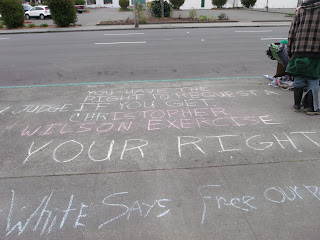 YOU HAVE THE
RIGHT TO REQUEST A
JUDGE IF YOU GET
CHRISTOPHER
WILSON EXERCISE
YOUR RIGHT
White Save Free our